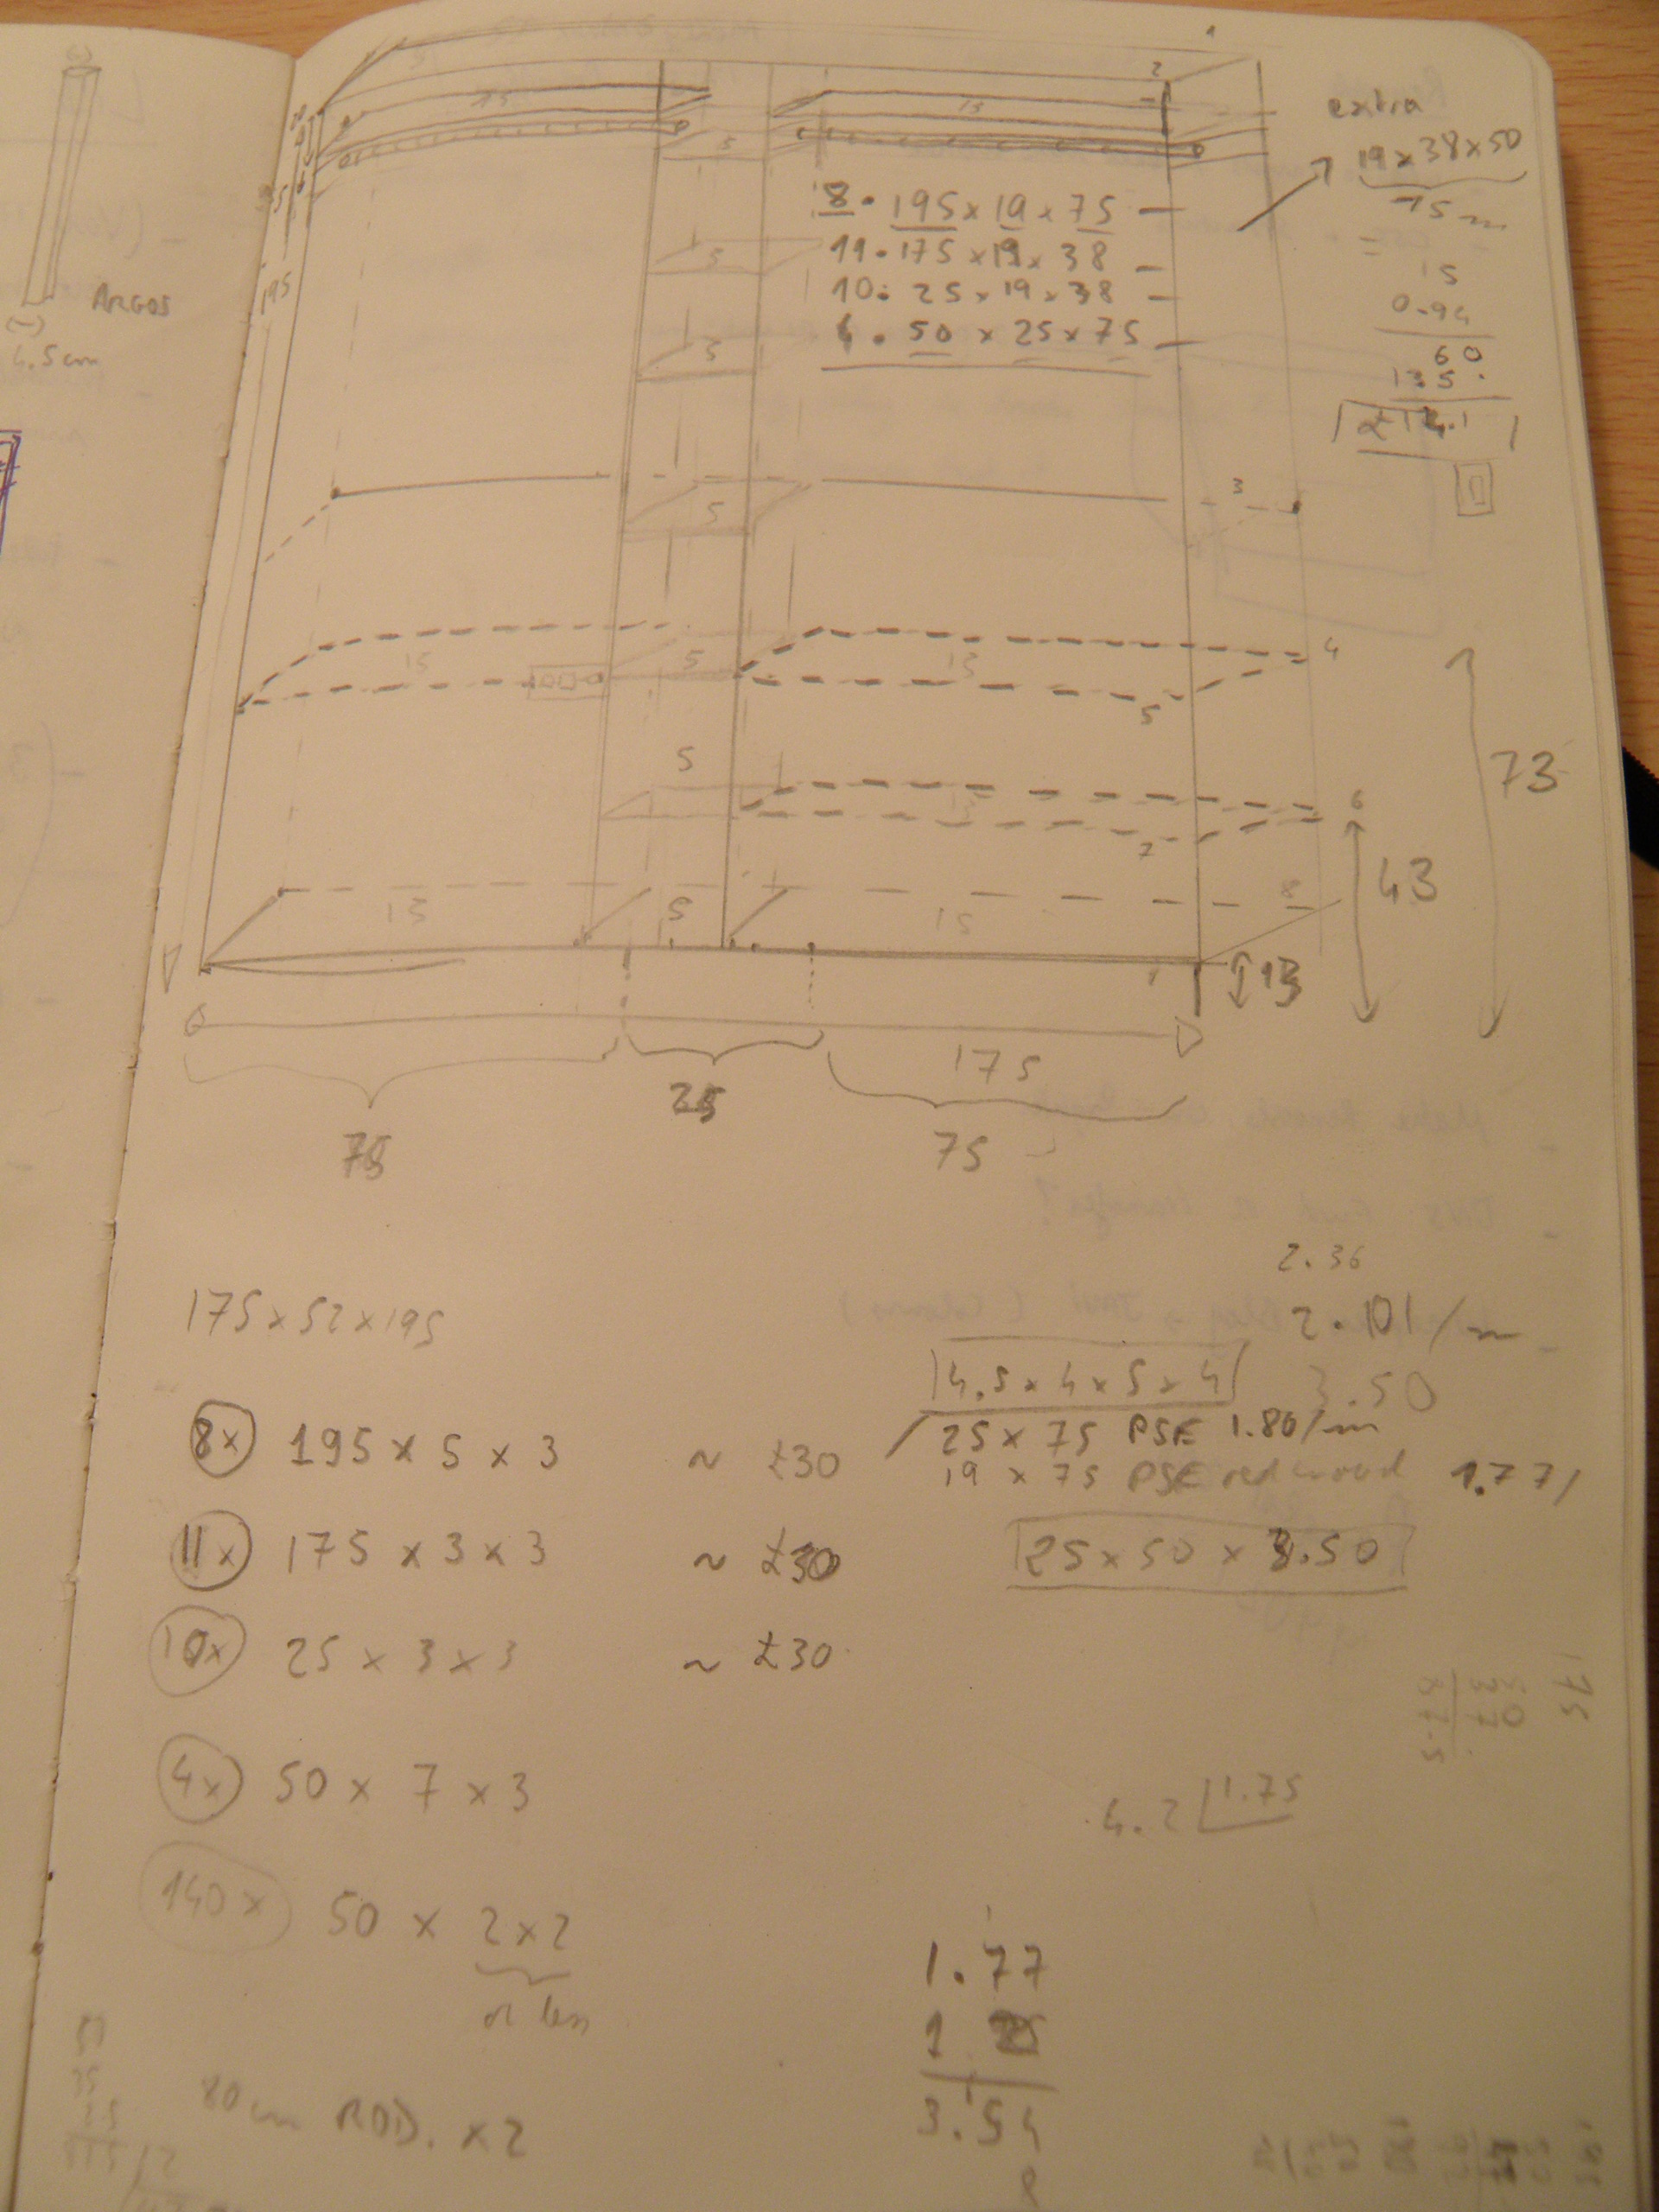 ARGOS
4.5cm
extra
19 x 38 x 50
15 m
=
15
0.94
60
135.
£14.1
8. 195 x 19 x 75 —
11. 175 x 19 x 38 —
10. 25 x 19 x 38 —
4. 50 x 25 x 75 —
1
2
15
15
5
5
5
5
3
195
15
5
15
4
5
5
15
6
7
73
43
15
5
15
8
13
175
75
25
75
175 x 52 x 195
2.36
2.101/m
4.5 x 4 x 5 x 4
3.50
8x 195 x 5 x 3 ~ £30
25 x 75 PSE 1.80/m
19 x 75 PSE redwood 1.77/
11x 175 x 3 x 3 ~ £30
25 x 50 x 3.50
10x 25 x 3 x 3 ~ £30
4x 50 x 7 x 3
4.2 1.75
140x 50 x 2 x 2
or less
1.77
3.54
8
80cm ROD. x2